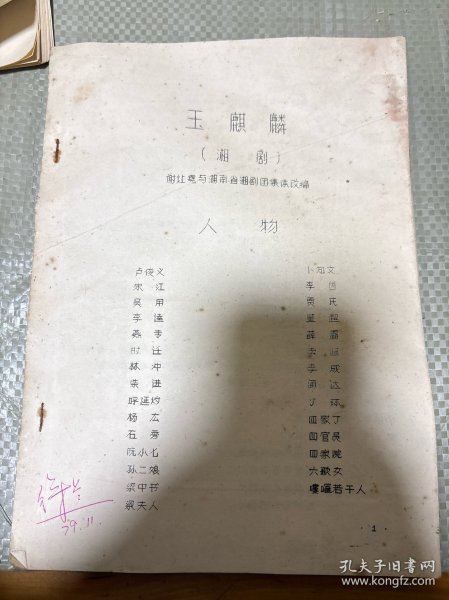 玉麒麟
（湘剧）
谢仕尧与湖南省湘剧团集体改编
人物
卢俊义
宋江
吴用
李逵
燕青
时迁
林冲
柴进
呼延灼
杨志
石秀
阮小七
孙二娘
梁中书
梁夫人
卜知文
李固
贾氏
董超
薛霸
李成
闻达
丫环
四家丁
四官员
四家院
六歌女
喽啰若干人
79.11.
·1·
孔夫子旧书网
www.kongfz.com